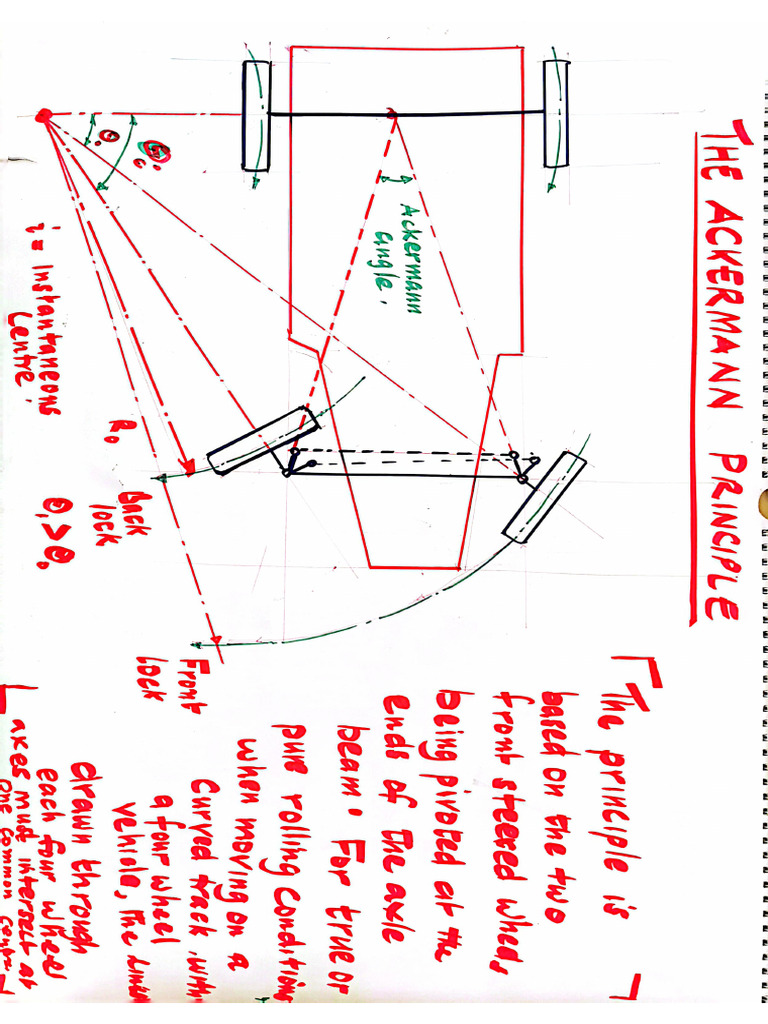 THE ACKERMANN PRINCIPLE
Ackermann
angle.
i = Instantaneous
Centre.
R₀
Back
lock
θᵢ > θ₀
Front
Lock
The principle is
based on the two
front steered wheels
being pivoted at the
ends of the axle
beam. For true or
pure rolling condition
when moving on a
curved track, with
a four wheel
vehicle, The lines
drawn through
each four wheel
axes must intersect at
one common centre